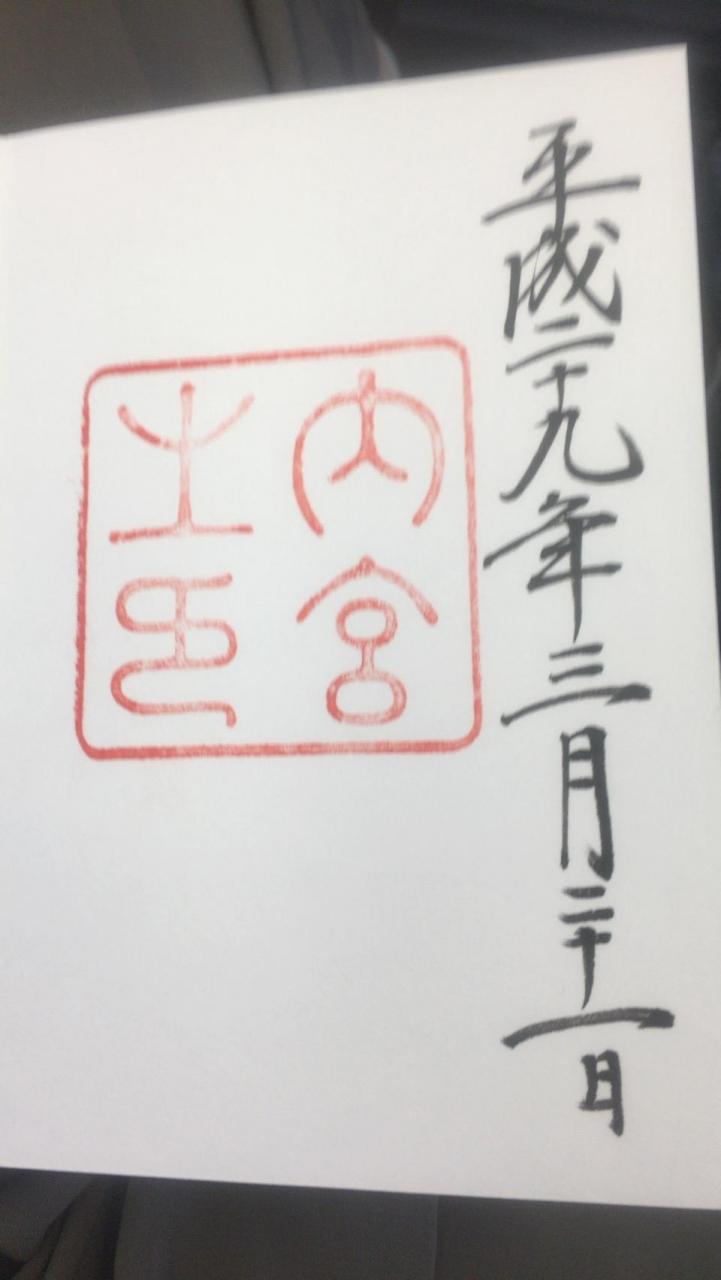 平成二十九年三月二十一日
内宮
之印